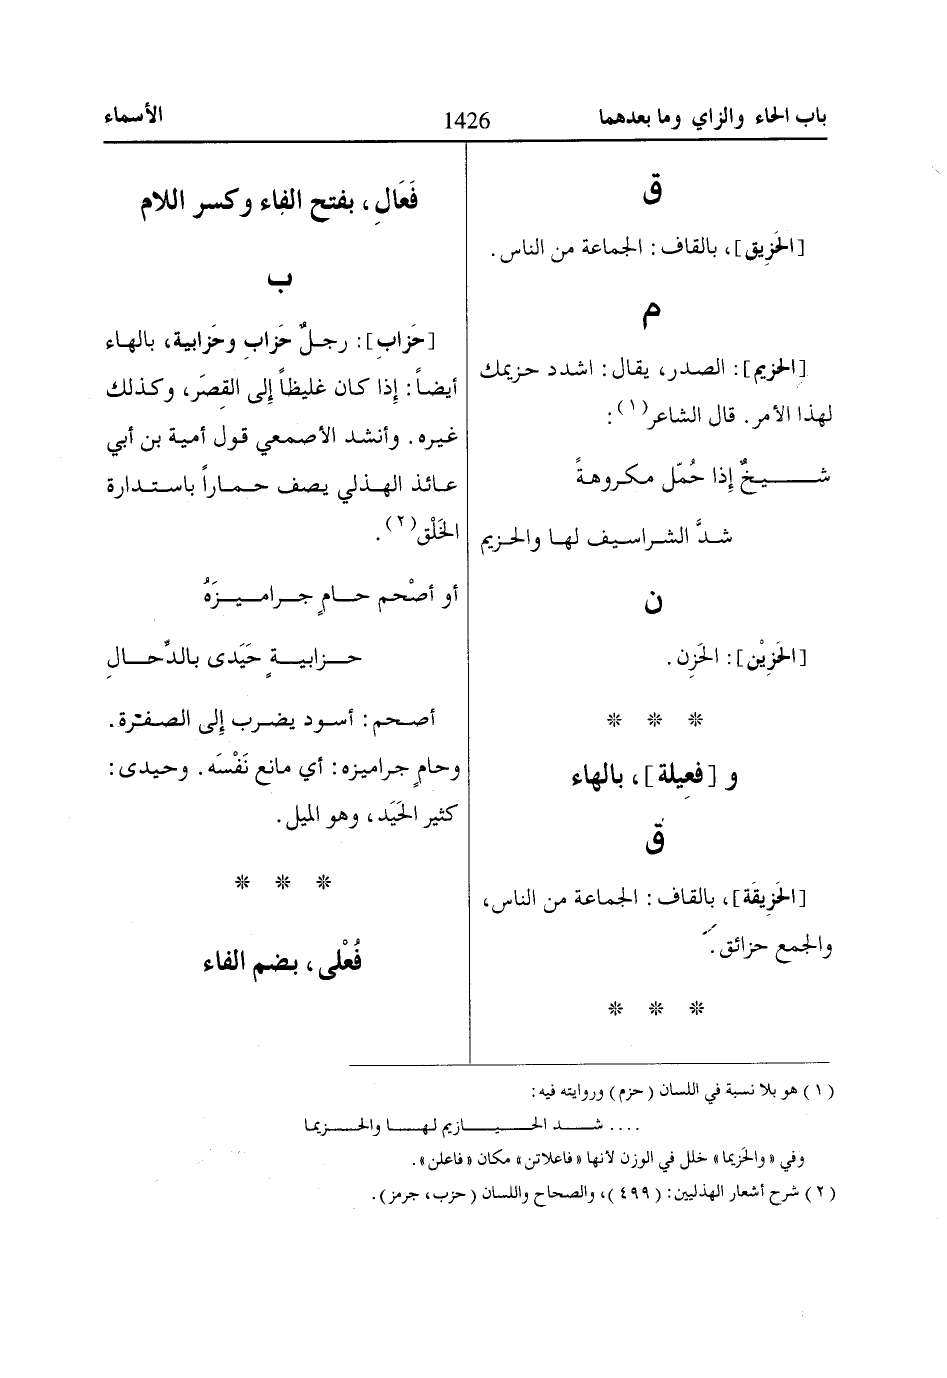 باب الحاء والزاي وما بعدهما
1426
الأسماء
ق
[الحَزِيق]، بالقاف: الجماعة من الناس.
م
[الحزيم]: الصدر، يقال: اشدد حزيمك
لهذا الأمر. قال الشاعر(١):
شـــيخٌ إذا حُمّل مكروهةً
شدَّ الشراسيف لها والحزيم
ن
[الحَزِيْن]: الحَزِن.
* * *
و [فعِيلة]، بالهاء
ق
[الحَزِيقَة]، بالقاف: الجماعة من الناس،
والجمع حزائق.
* * *
فَعَالِ، بفتح الفاء وكسر اللام
ب
[حَزابِ]: رجلٌ حَزابِ وحَزابية، بالهاء
أيضاً: إذا كان غليظاً إلى القِصَر، وكذلك
غيره. وأنشد الأصمعي قول أمية بن أبي
عائذ الهذلي يصف حماراً باستدارة
الخَلْق(٢).
أو أصْحم حامٍ جراميزَهُ
حزابيةٍ حَيَدى بالدِّحالِ
أصحم: أسود يضرب إلى الصفرة.
وحامٍ جراميزه: أي مانع نَفْسَه. وحيدى:
كثير الحَيَد، وهو الميل.
* * *
فُعْلى، بضم الفاء
(١) هو بلا نسبة في اللسان (حزم) وروايته فيه:
.... شد الحيازيم لها والحزيما
وفي «والحَزِيما» خلل في الوزن لأنها «فاعلاتن» مكان «فاعلن».
(٢) شرح أشعار الهذليين: (٤٩٩)، والصحاح واللسان (حزب، جرمز).